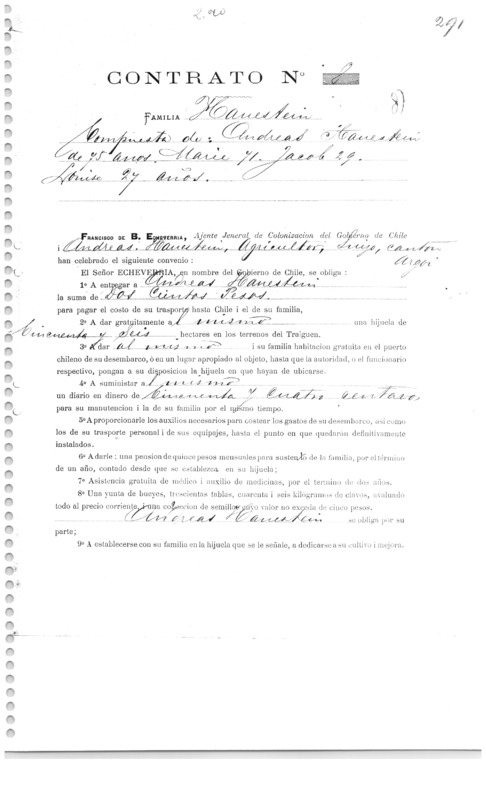 2.90
291
CONTRATO Nº 8
8)
FAMILIA Hauestein
Compuesta de: Andreas Hauestein
de 75 años. Marie 71. Jacob 29.
Louise 27 años.
FRANCISCO DE B. ECHEVERRIA, Ajente Jeneral de Colonizacion del Gobierno de Chile
i Andreas. Hauestein, Agricultor, Suizo, canton
Argoi
han celebrado el siguiente convenio:
El Señor ECHEVERRIA, en nombre del Gobierno de Chile, se obliga:
1º A entregar a Andreas Hauestein
la suma de Dos Cientos Pesos.
para pagar el costo de su trasporte hasta Chile i el de su familia,
2º A dar gratuitamente al mismo una hijuela de
Cincuenta y Seis hectares en los terrenos del Traiguen.
3º A dar al mismo i su familia habitacion gratuita en el puerto
chileno de su desembarco, ó en un lugar apropiado al objeto, hasta que la autoridad, o el funcionario
respectivo, pongan a su disposicion la hijuela en que hayan de ubicarse.
4º A suministar al mismo
un diario en dinero de Cincuenta y cuatro centavo
para su manutencion i la de su familia por el mismo tiempo.
5º A proporcionarle los auxilios necesarios para costear los gastos de su desembarco, así como
los de su trasporte personal i de sus equipajes, hasta el punto en que quedarán definitivamente
instalados.
6º A darle: una pension de quince pesos mensuales para sustento de la familia, por el término
de un año, contado desde que se establezca en su hijuela;
7º Asistencia gratuita de médico i auxilio de medicinas, por el termino de dos años.
8º Una yunta de bueyes, trescientas tablas, cuarenta i seis kilógramos de clavos, avaluado
todo al precio corriente, i una coleccion de semillas cuyo valor no exceda de cinco pesos.
Andreas Hauestein se obliga por su
parte;
9º A establecerse con su familia en la hijuela que se le señale, a dedicarse a su cultivo i mejora.